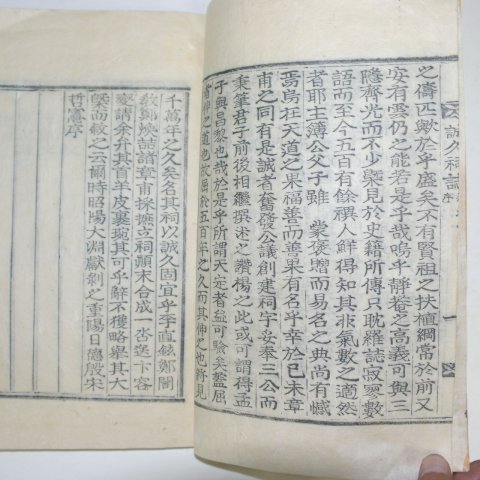 之儔匹歟於乎盛矣不有賢祖之扶植綱常於前又
安有雲仍之能若是乎哉嗚乎靜菴之高義可與三
隱齊光而不少槩見於史籍所傳只耽羅誌寂寥數
語而至今五百有餘禩人鮮得知其非氣數之適然
者耶主簿公父子雖蒙褒贈而易名之典尚有憾
焉烏在天道之果福善而善果有名乎幸於己未章
甫之同有是誠者奮發公議創建祠宇妥奉三公而
秉筆君子前後相繼撰述之讚楊之此或可謂得孟
子興昌黎也哉於是乎所謂天定者益可驗矣盖屈
者神之道也故屈於五百年之久而其伸之也將見
千萬年之久矣名其祠以誠久固宜乎李直鉉鄭閣
教鄭煥喆諸章甫採摭立祠顚末合成一呇送卞容
夔請余弁其首羊皮裏㺚其可乎辭不獲略舉其大
槩而敘之云爾時昭陽大淵獻剝之重陽日德殷宋
哲憲序
誠久祠誌
序
一